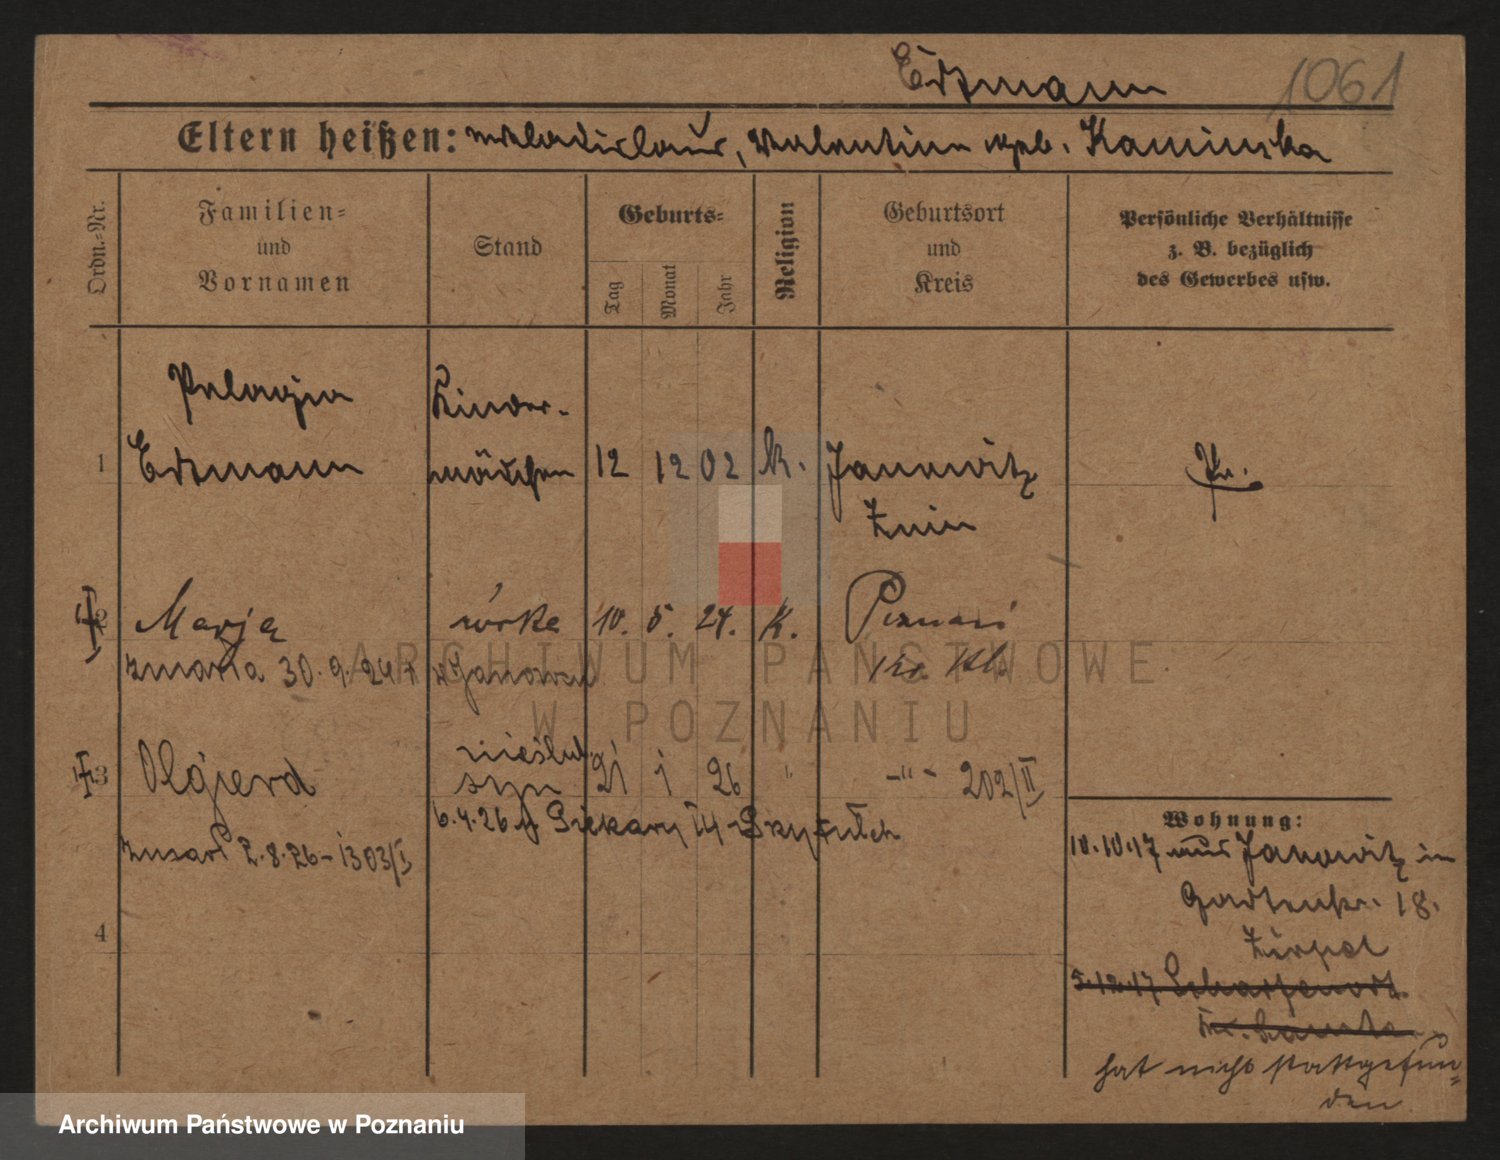 Erdmann 1061
Eltern heißen: Wladislaus, Valentine geb. Kaminska
Ordn.-Nr.
Familien-
und
Vornamen
Stand
Geburts-
Tag
Monat
Jahr
Religion
Geburtsort
und
Kreis
Persönliche Verhältnisse
z. B. bezüglich
des Gewerbes usw.
Pelagia Kinder-
1 Erdmann mädchen 12 12 02 k. Janowitz Pr.
Znin
2 Marja córka 10. 5. 24. K. Poznań
zmarła 30.9.24 w Janowcu
3 Olgierd nieślub. syn 21 1 26 " -"- 202/II
6.4.26 Piekary
zmarł 2.8.26 - 1303/I
4
Wohnung:
10.10.17 aus Janowitz in
Gartenstr. 18.
5.12.17 Scharfenort
hat nicht stattgefun-
den
ARCHIWUM PAŃSTWOWE
W POZNANIU
Archiwum Państwowe w Poznaniu